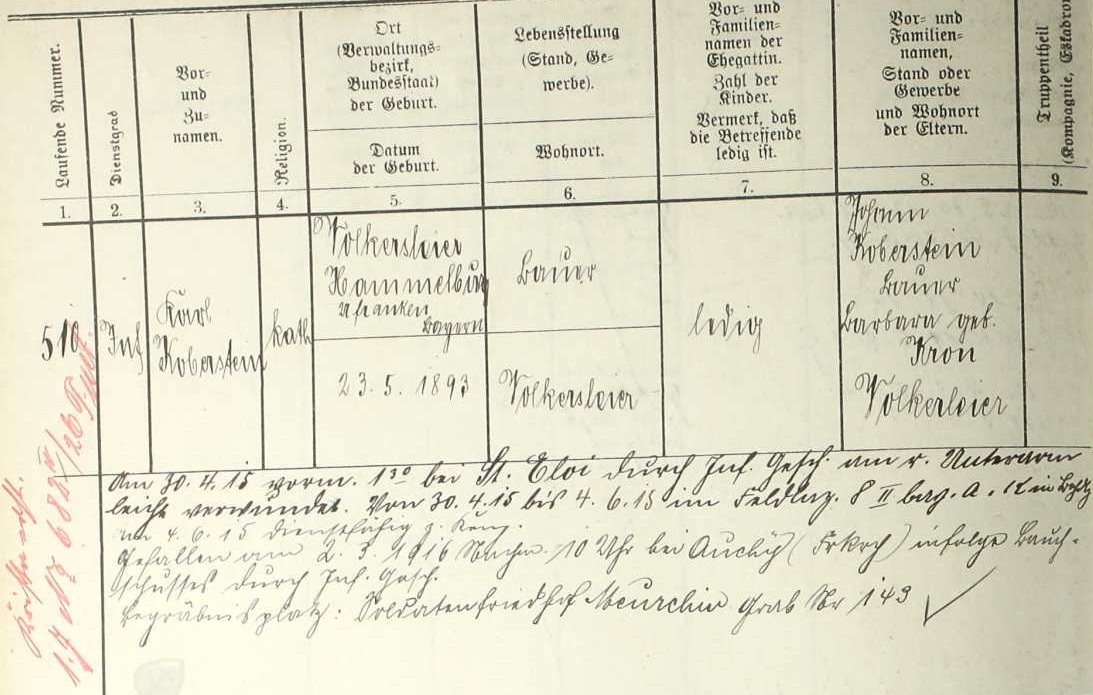 Laufende Nummer.
Dienstgrad
Vor=
und
Zu=
namen.
Religion.
Ort
(Verwaltungs=
bezirk,
Bundesstaat)
der Geburt.
Datum
der Geburt.
Lebensstellung
(Stand, Ge=
werbe).
Wohnort.
Vor= und
Familien=
namen der
Ehegattin.
Zahl der
Kinder.
Vermerk, daß
die Betreffende
ledig ist.
Vor= und
Familien=
namen,
Stand oder
Gewerbe
und Wohnort
der Eltern.
Truppentheil
(Kompagnie, Eskadron
1.
2.
3.
4.
5.
6.
7.
8.
9.
510
Inf
Karl
Koberstein
kath
Volkersleier
Hammelburg
Ufranken
Bayern
23.5.1893
Bauer
Volkersleier
ledig
Johann
Koberstein
Bauer
Barbara geb.
Kron
Volkerleier
Am 30.4.15 vorm. 1³⁰ bei St. Eloi durch Inf. Gesch. am r. Unterarm
leicht verwundet. Von 30.4.15 bis 4.6.15 im Feldlaz. 8 II bay. A. K in
am 4.6.15 dienstfähig z. Komp.
Gefallen am 2.3.1916 Nachm. 10 Uhr bei Auchy (Frkrch) infolge Bauch-
schusses durch Inf. Gesch.
Begräbnisplatz: Soldatenfriedhof Meurchin Grab Nr 143